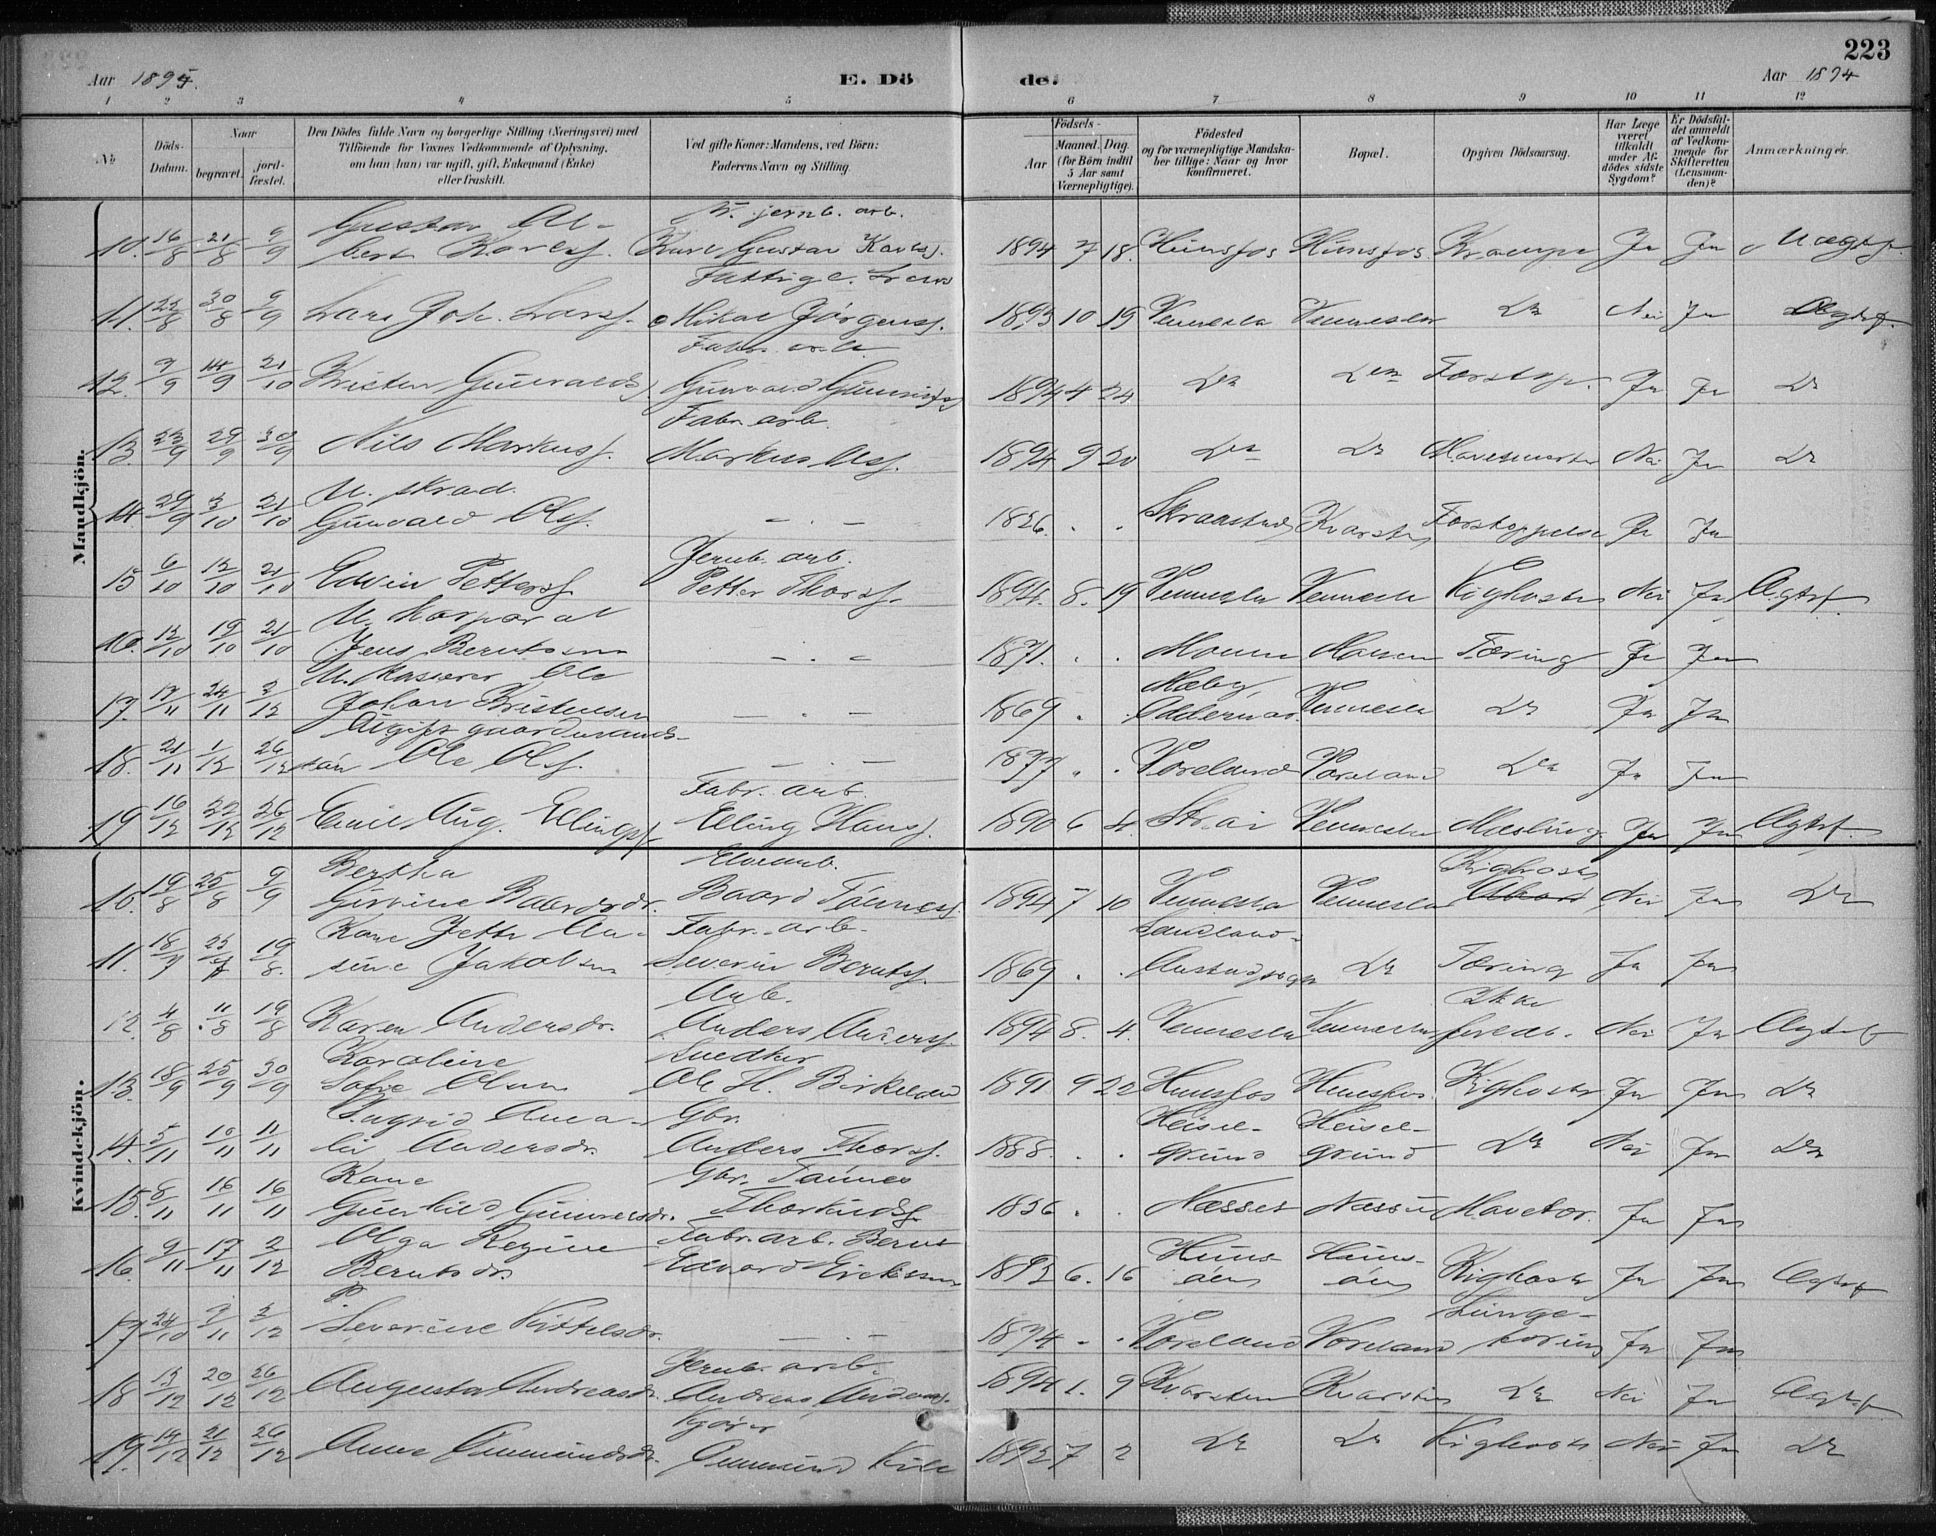 223
Aar 1894.
E. Dö
de.
Aar 1894
1 2 3 4 5 6 7 8 9 10 11 12
No
Döds-Datum.
Naar
begravet.
jord-fæstet.
Den Dödes fulde Navn og borgerlige Stilling (Næringsvei) med
Tilföiende for Voxnes Vedkommende af Oplysning,
om han (hun) var ugift, gift, Enkemand (Enke)
eller fraskilt.
Ved gifte Koner: Mandens, ved Börn:
Faderens Navn og Stilling.
Födsels-
Aar
Maaned. Dag.
(for Börn indtil
5 Aar samt
Værnepligtige).
Födested
og for værnepligtige Mandska-
ber tillige: Naar og hvor
konfirmeret.
Bopæl.
Opgiven Dödsaarsag.
Har Læge
været
tilkaldt
under Af-
dödes sidste
Sygdom?
Er Dödsfal-
det anmeldt
af Vedkom-
mende for
Skifteretten
(Lensman-
den)?
Anmærkninger.
Mandkjön.
Gustav Al- jernb. arb.
10. 16/8 21/8 9/9 bert Karlsf. Karl Gustav Karlsf. 1894 7 18. Hunsfos Hunsfos Krampe Ja Ja Uægtef.
11. 30/8 9/9 Lars Joh. Larsf. Mikal Jörgensf. 1893 10 19 Vennesla Vennesla Do Nei Ja Ægtef.
Fabr. arb.
12. 7/9 14/9 21/10 Kristen Gunvalds. Gunvald 1894 4 24 Do Do Ja Ja Do
Fabr. arb.
13. 23/9 29/9 30/9 Nils Markusf. Markus Olsf. 1894 9 20 Do Do Nei Ja Do
U. skræd.
14. 29/9 3/10 21/10 Gunvald Olsf. — . — 1826 . . Skraastad Forstoppelse Ja Ja
Jernb. arb.
15 6/10 13/10 21/10 Edvin Pettersf. Petter Thorsf. 1894. 8. 19 Vennesla Vennesla Kighoste Nei Ja Ægtef.
U. Korporal
16. 12/10 19/10 21/10 Jens Berntsen — . — 1871. . . Moseid Moseid Tæring Ja Ja
U. Kasserer Ole Mæby,
17. 17/11 24/11 2/12 Johan Kristensen — . — 1869 . . Oddernæs. Vennesla Do Ja Ja
Ugift gaardmands-
18. 21/11 1/12 26/12 sön Ole Olsf. — . — 1877 . . Voreland Voreland Do Ja Ja
Fabr. arb.
19 16/12 22/12 26/12 Emil Aug. Ellingsf. Elling Hansf. 1890 6 4. Strai Vennesla Mæslinger Ja Ja Ægtef.
Kvindekjön.
Bertha Elvearb. Kighoste
10. 19/8 25/8 9/9 Baardsdr. Baard Tönnesf. 1894 7 10 Vennesla Vennesla Nei Ja Do
Kone Jette An- Fabr. arb. Landland-
11. 18/7 25/7 19/8. sine Jakobsen Severin Berntsf. 1869 . . Do Tæring Ja Ja
Arb. Ikke
12. 4/8 11/8 19/8 Karen Andersdr. Anders Andersf. 1894 8. 4. Vennesla Vennesla Nei Ja Ægtef.
Karoline Snedker
13. 18/9 25/9 30/9 Sofie Olsen Ole H. Birkeland 1891 9 22 Hunsfos Hunsfos. Kighoste Ja Ja Do
Ingrid Ama- Gbr. Heisel- Heisel-
14. 5/11 10/11 11/11 lie Andersdr. Anders Thorsf. 1888. . . grund grund Do Nei Ja Do
Kone Gbr. Tönnes
15. 8/11 16/11 16/11 Gunhild Gunnersdr. Thorkildsf. 1836 . . Næsset Næsset Mavetæ. Ja Ja
Olga Regine Fabr. arb. Bernt Huns- Huns-
16. 9/11 17/11 2/12 Berntsdr. Edvard Eriksen 1893 6. 16 öen öen Kighoste Ja Ja Ægtef
P. Lunge-
17 24/10 2/11 2/12 Severine Kittelsdr. — . — 1874 . . Voreland Voreland tæring Ja Ja
Jernb. arb.
18 13/12 20/12 26/12 Augusta Andreasdr. Andreas 1894 1. 9 Kvarsten Kvarsten Do Nei Ja Ægtef
19. 14/12 21/12 26/12 Anne Ommundsdr. Ommund Kile 1892 7 2 Do Do Kighoste Nei Ja Do